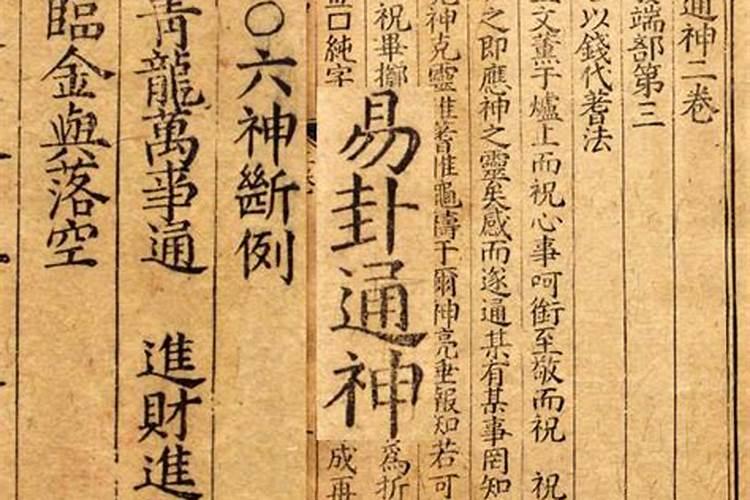 通神二卷
端部第三
以錢代蓍法
文薰于爐上而祝心事呵銜至敬而祝 祝
之即應神之靈矣感而遂通某有某事罔知
神克靈惟蓍惟龜禱于爾神亮垂報知若可
祝畢擲
為折
口純字
成再
易卦通神
〇六神斷例
青龍萬事通 進財進
臨金與落空